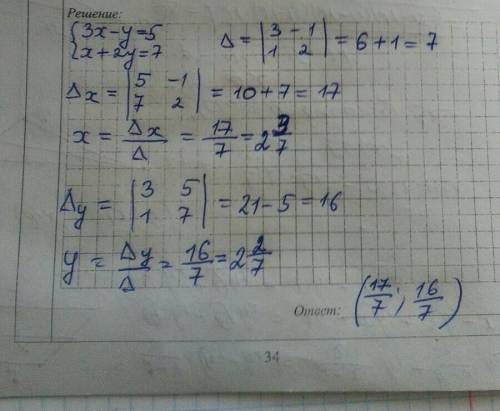 Решение:
{3x-y=5
{x+2y=7
Δ = |3 -1| = 6+1 = 7
|1 2|
Δx = |5 -1| = 10+7 = 17
|7 2|
x = Δx/Δ = 17/7 = 2 3/7
Δy = |3 5| = 21-5 = 16
|1 7|
y = Δy/Δ = 16/7 = 2 2/7
Ответ: (17/7; 16/7)
34